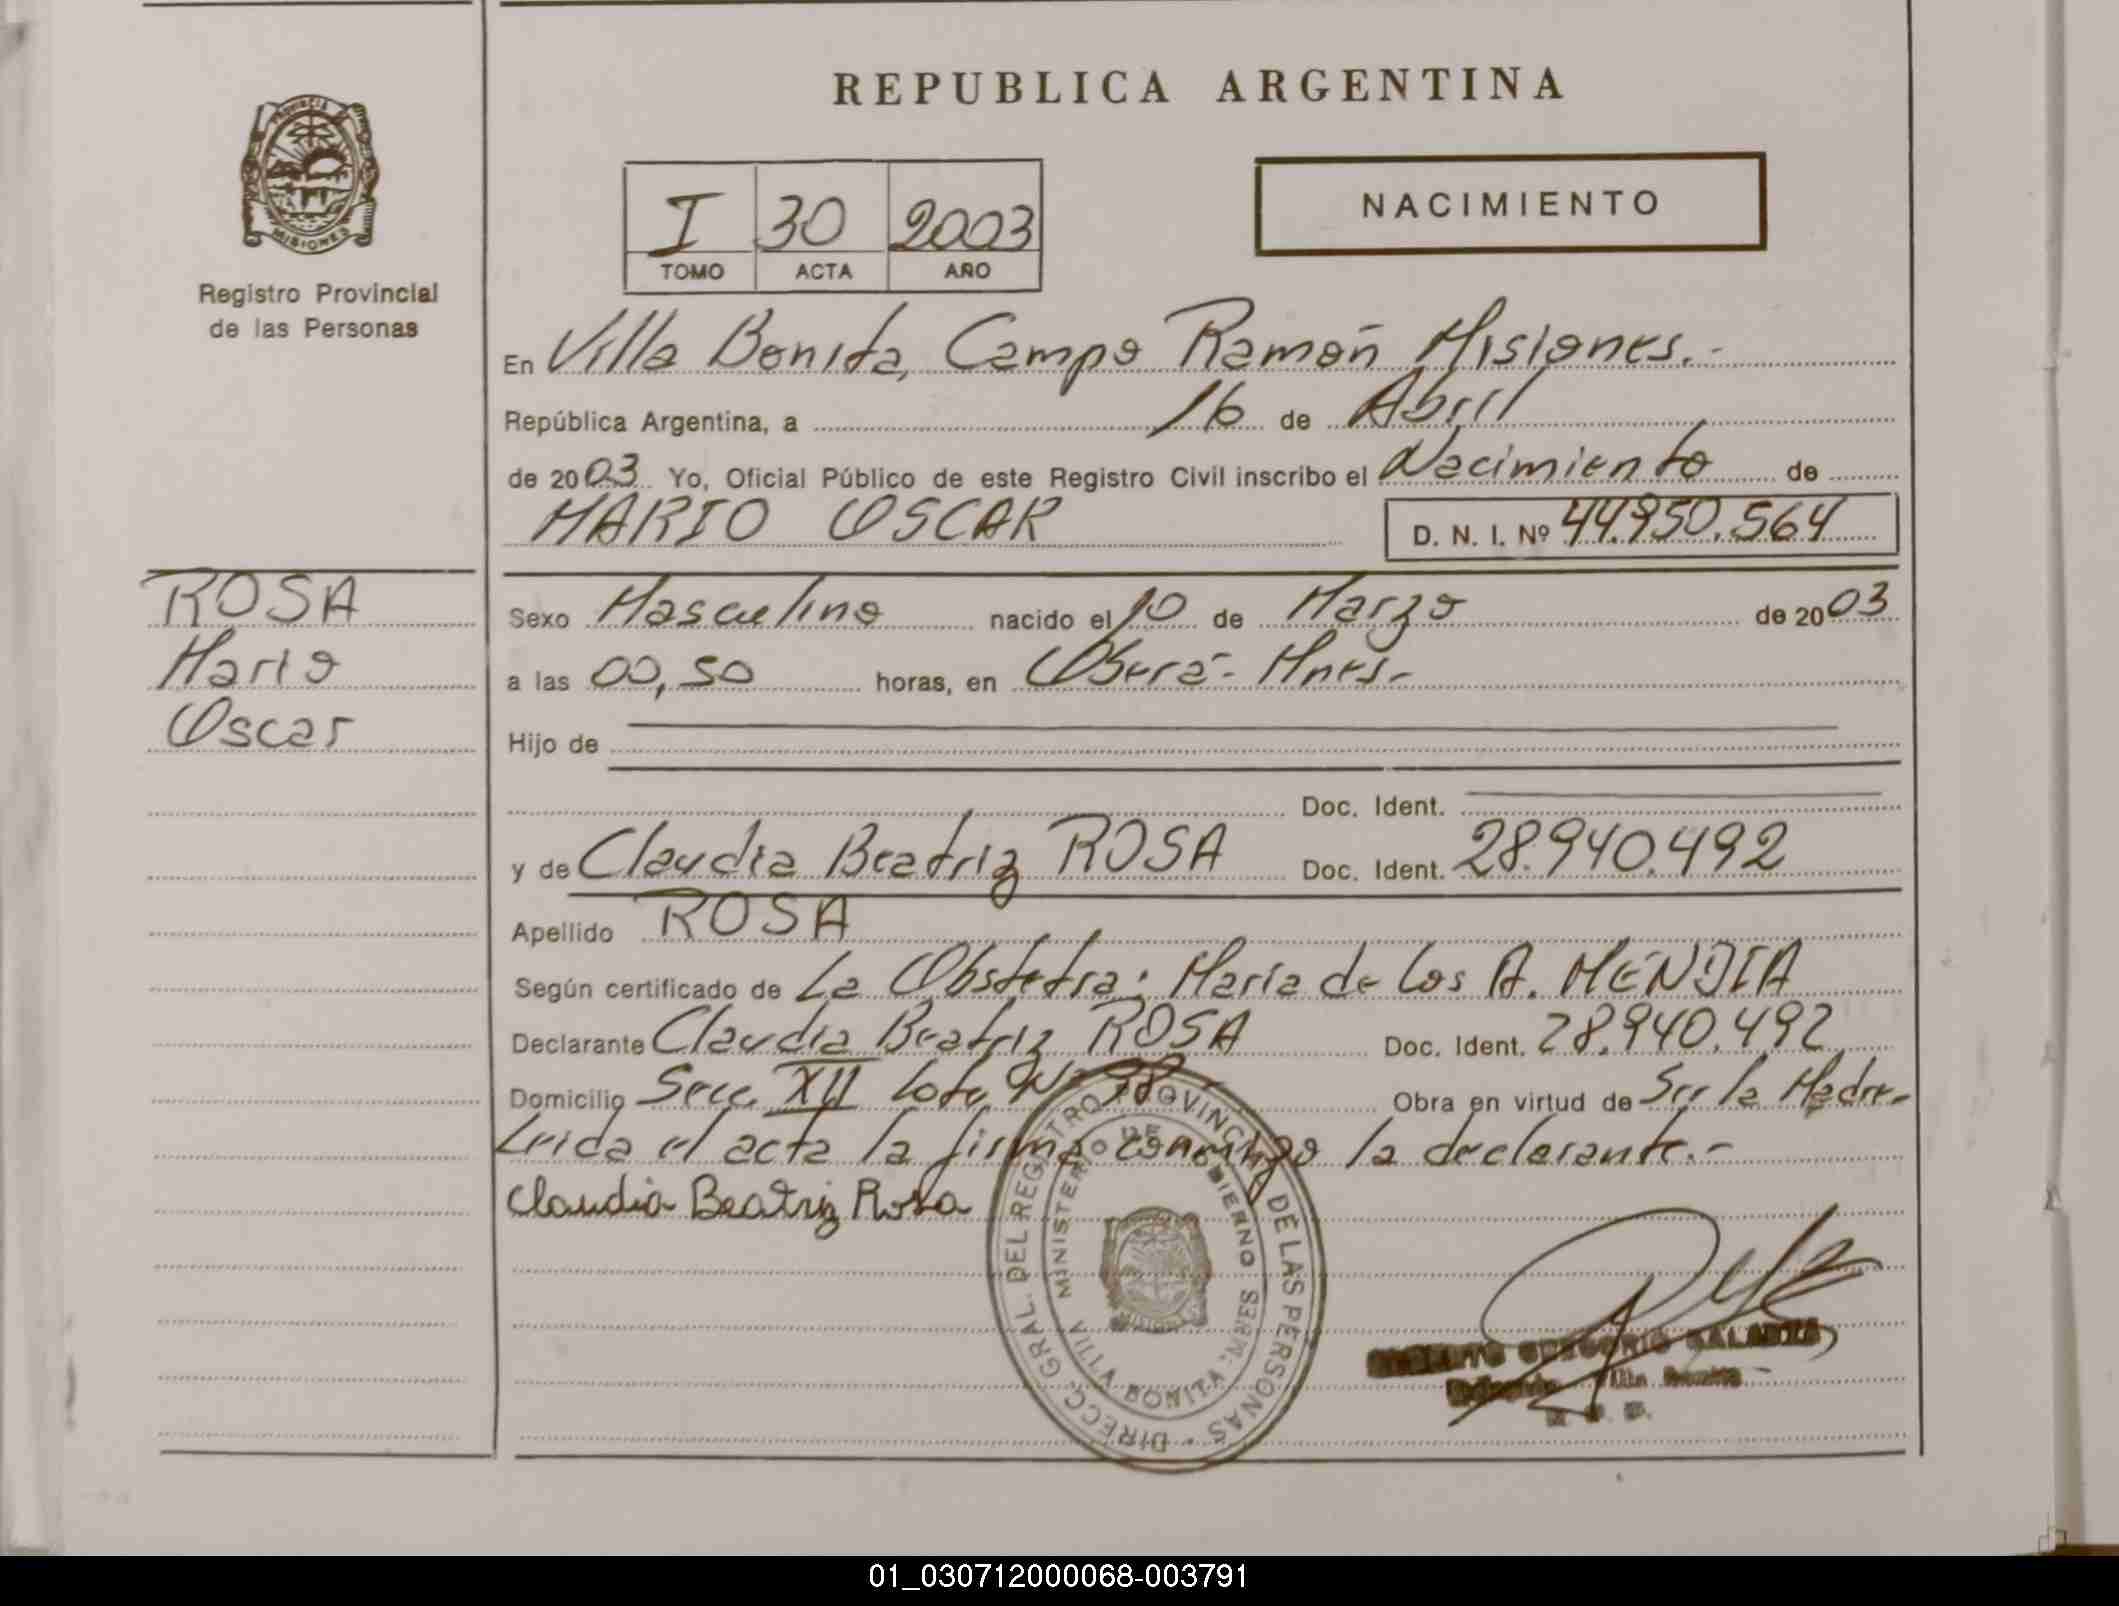 REPUBLICA ARGENTINA
PROVINCIA
MISIONES
Registro Provincial
de las Personas
I 30 2003
TOMO ACTA AÑO
NACIMIENTO
En Villa Bonita, Campo Ramón Misiones.-
República Argentina, a 16 de Abril
de 2003 Yo, Oficial Público de este Registro Civil inscribo el Nacimiento de
MARIO OSCAR D. N. I. Nº 44.950.564
ROSA
Mario
Oscar
Sexo Masculino nacido el 10 de Marzo de 2003
a las 00,50 horas, en Oberá- Mnes-
Hijo de
Doc. Ident.
y de Claudia Beatriz ROSA Doc. Ident. 28.940.492
Apellido ROSA
Según certificado de La Obstetra: María de los A. MENDIA
Declarante Claudia Beatriz ROSA Doc. Ident. 28.940.492
Domicilio Secc. XII Lote Nº 98 Obra en virtud de Ser la Madre-
Leida el acta la firma conmigo la declarante.-
Claudia Beatriz Rosa
DIRECC. GRAL. DEL REGISTRO PROVINCIAL DE LAS PERSONAS
MINISTERIO DE GOBIERNO
VILLA BONITA - MNES
MISIONES
GREGORIO
Villa Bonita
01_030712000068-003791